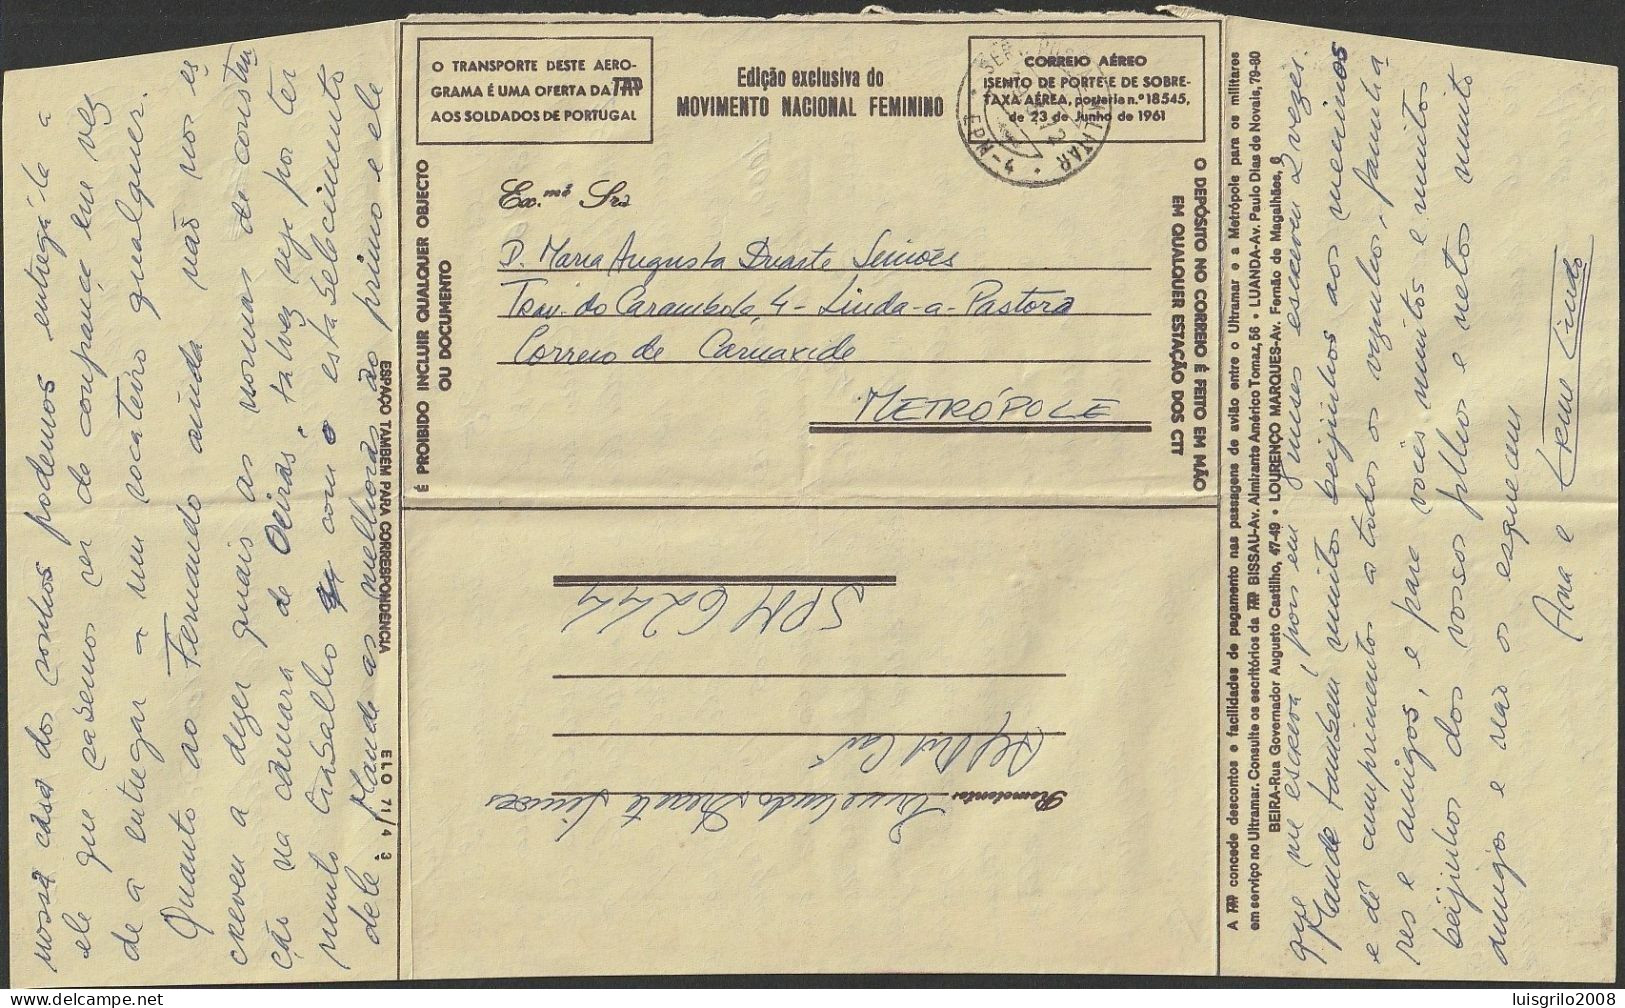 O TRANSPORTE DESTE AERO-
GRAMA É UMA OFERTA DA TAP
AOS SOLDADOS DE PORTUGAL
Edição exclusiva do
MOVIMENTO NACIONAL FEMININO
CORREIO AÉREO
ISENTO DE PORTE E DE SOBRE-
TAXA AÉREA, portaria n.º 18545,
de 23 de Junho de 1961
É PROIBIDO INCLUIR QUALQUER OBJECTO
OU DOCUMENTO
O DEPÓSITO NO CORREIO É FEITO EM MÃO
EM QUALQUER ESTAÇÃO DOS CTT
Ex.mª Srª
D. Maria Augusta Duarte Simões
Trav. do Carambola, 4 - Linda-a-Pastora
Correio de Carnaxide
METRÓPOLE
Remetente Duarte Simões
SPM 6244
ESPAÇO TAMBÉM PARA CORRESPONDÊNCIA
ELO 71/4
A TAP concede descontos e facilidades de pagamento nas passagens de avião entre o Ultramar e a Metrópole para os militares
em serviço no Ultramar. Consulte os escritórios da TAP BISSAU-Av. Almirante Américo Tomaz, 56 • LUANDA-Av. Paulo Dias de Novais, 79-80
BEIRA-Rua Governador Augusto Castilho, 47-49 • LOURENÇO MARQUES-Av. Fernão de Magalhães, 6
nossa casa dos sonhos podemos entregá-la a
ele que sabemos ser de confiança em vez
de a entregar a um qualquer.
Quanto ao Fernando ainda não nos es
creveu a dizer quais as normas de constru
ção na câmara de Oeiras, talvez seja por ter
muito trabalho com o estabelecimento
dele? Mande as melhoras ao primo e ele
que me escreva, pois em 9 meses escreveu 2 vezes.
Mande também muitos beijinhos aos meninos
e dê cumprimentos a todos os vizinhos, familia
res e amigos, e para vocês muitos e muitos
beijinhos dos vossos filhos e netos muito
amigos e não os esquecem
Ana e
luisgrilo2008
delcampe.net